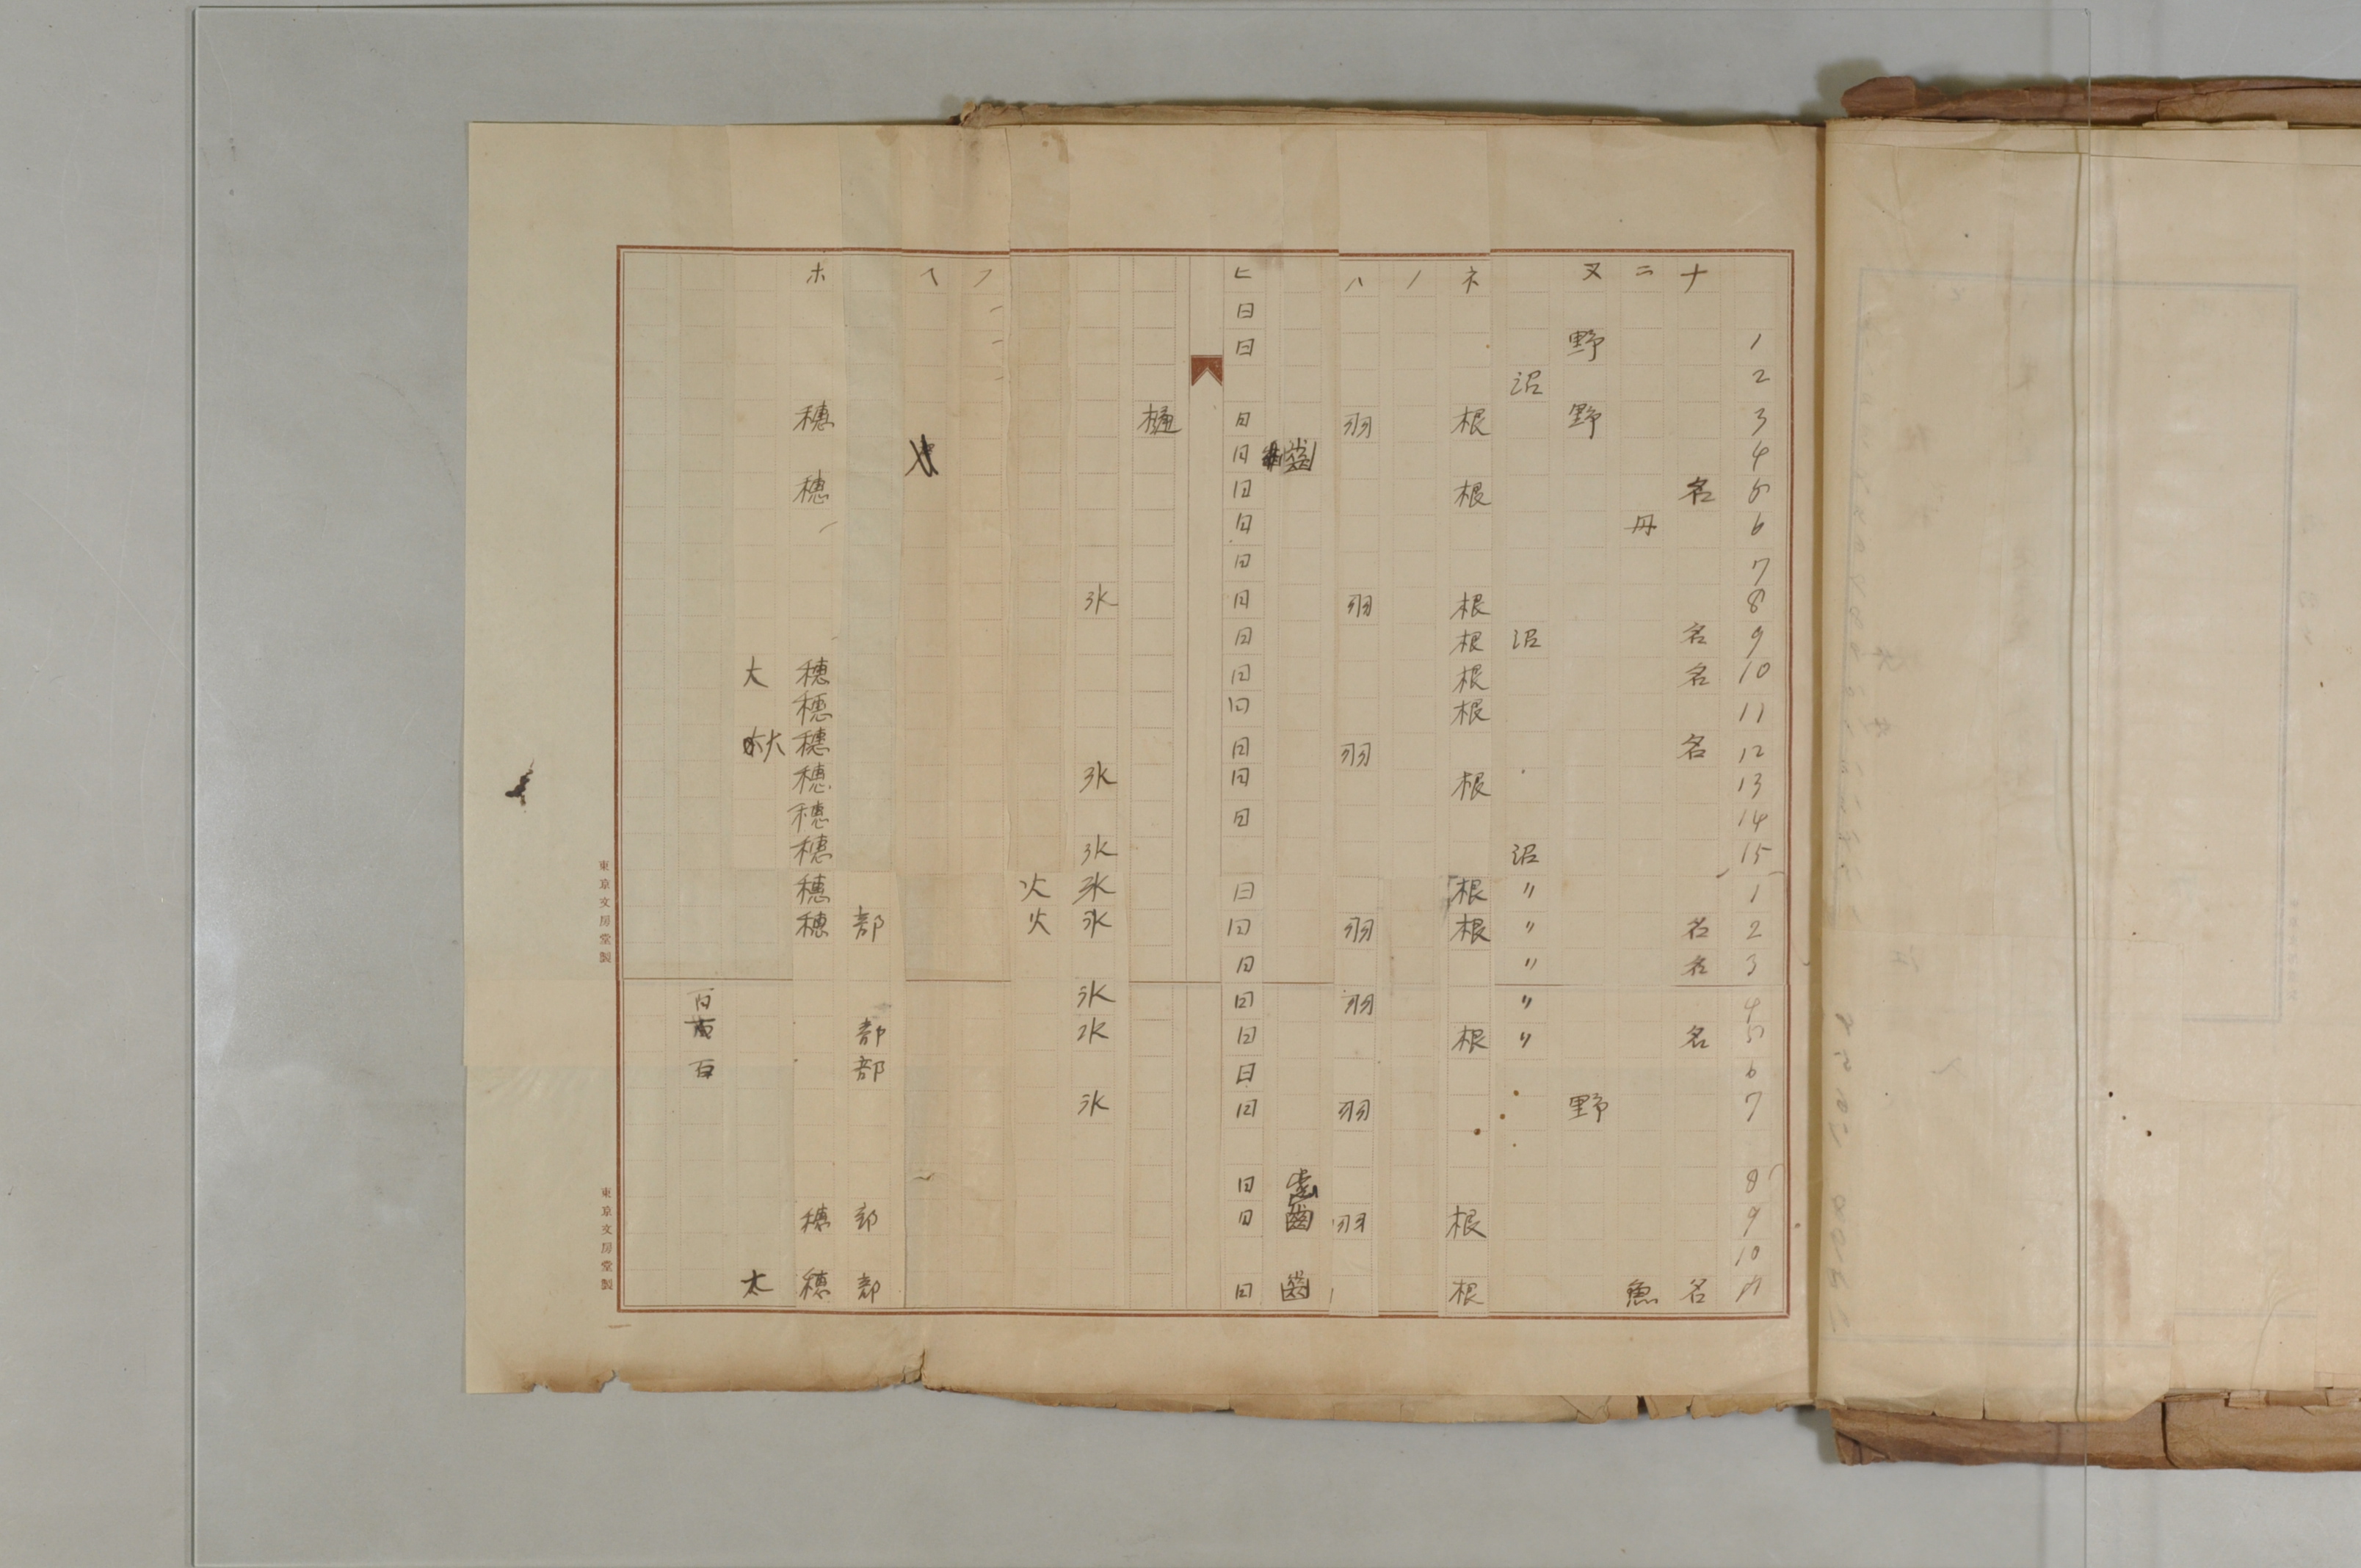 1 2 3 4 5 6 7 8 9 10 11 12 13 14 15 1 2 3 4 5 6 7 8 9 10 11
ナ 名 名 名 名 名 名 名 名
ニ 丹 魚
ヌ 野 野 野
沼 沼 沼 〃 〃 〃 〃 〃
ネ 根 根 根 根 根 根 根 根 根 根 根 根
ノ
ハ 羽 羽 羽 羽 羽 羽 羽
齒 齒 齒
ヒ 日 日 日 日 日 日 日 日 日 日 日 日 日 日 日 日 日 日 日 日 日 日 日 日
樋
氷 氷 氷 氷 氷 氷 水 氷
火 火
フ
ヘ
部 部 部 部 部
ホ 穂 穂 穂 穂 穂 穂 穂 穂 穂 穂 穂 穂
大 大 太
百 百
東京文房堂製
東京文房堂製